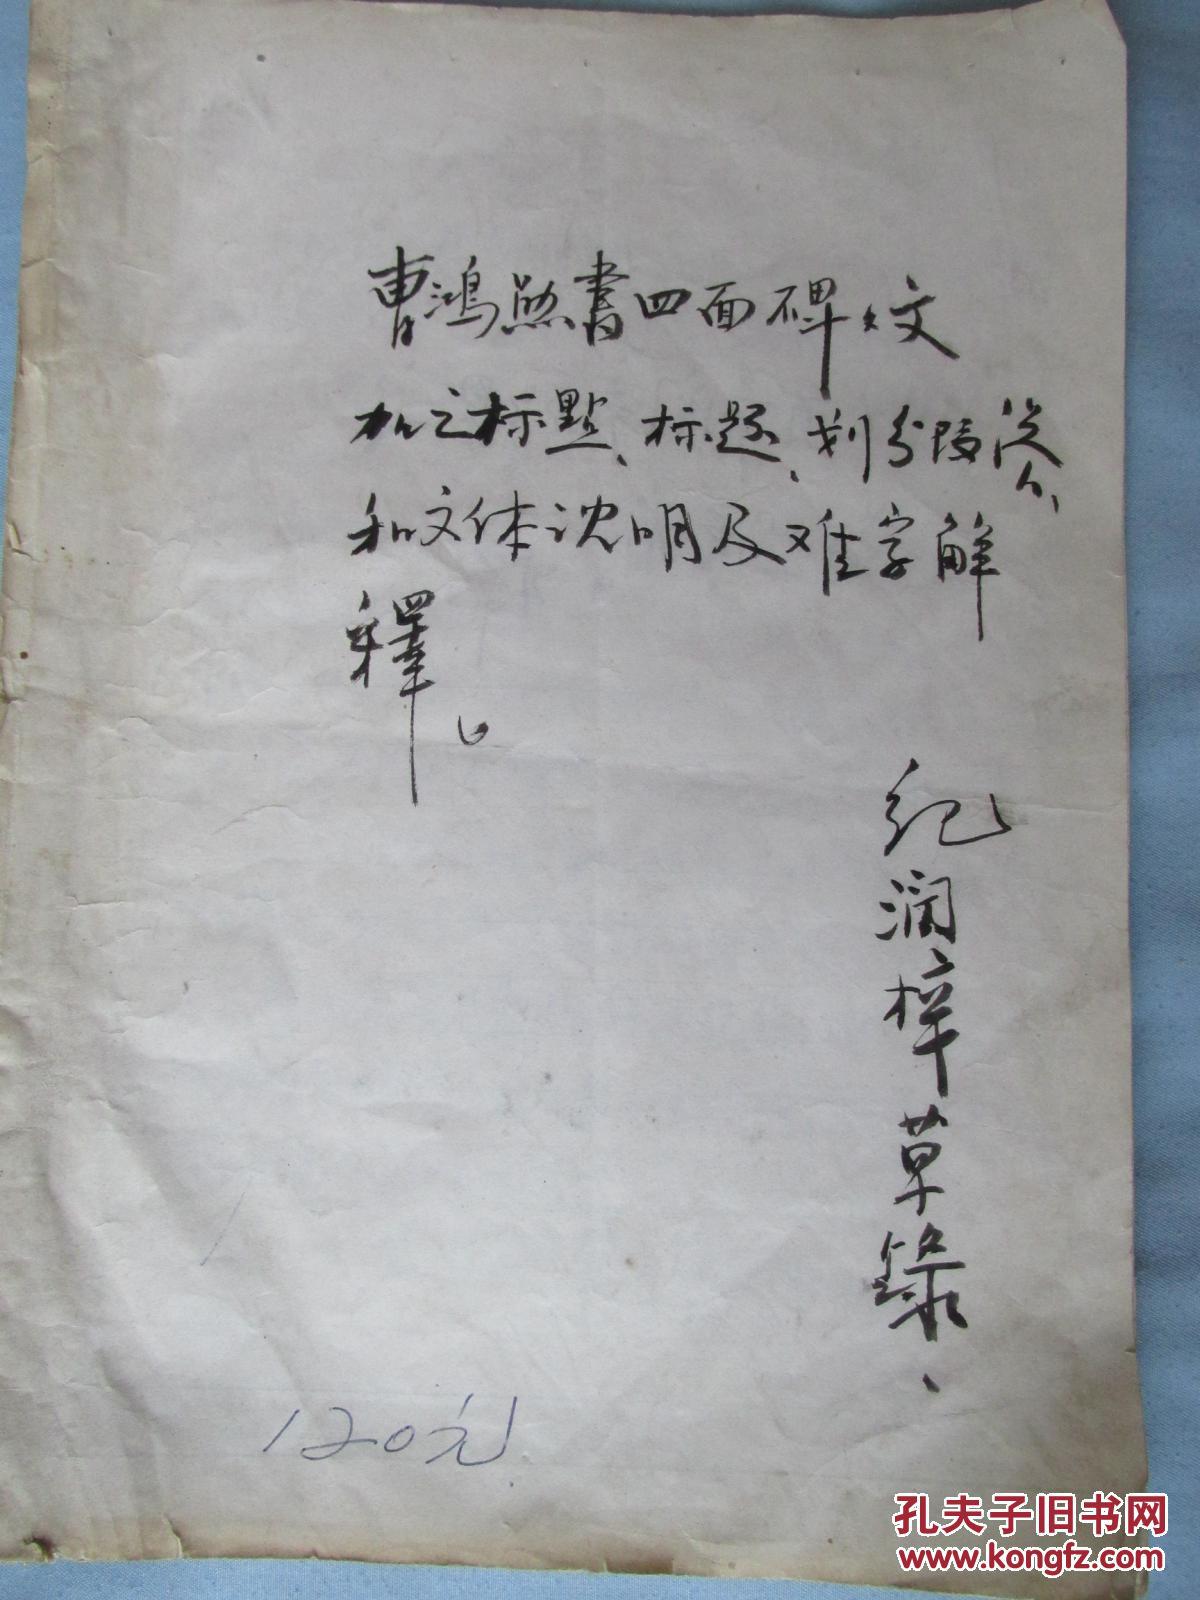 曹鸿勋書四面碑文
加之标點、标题、划分段落、
和文体说明及难字解
釋。
纪润梓草錄、
120元
孔夫子旧书网
www.kongfz.com